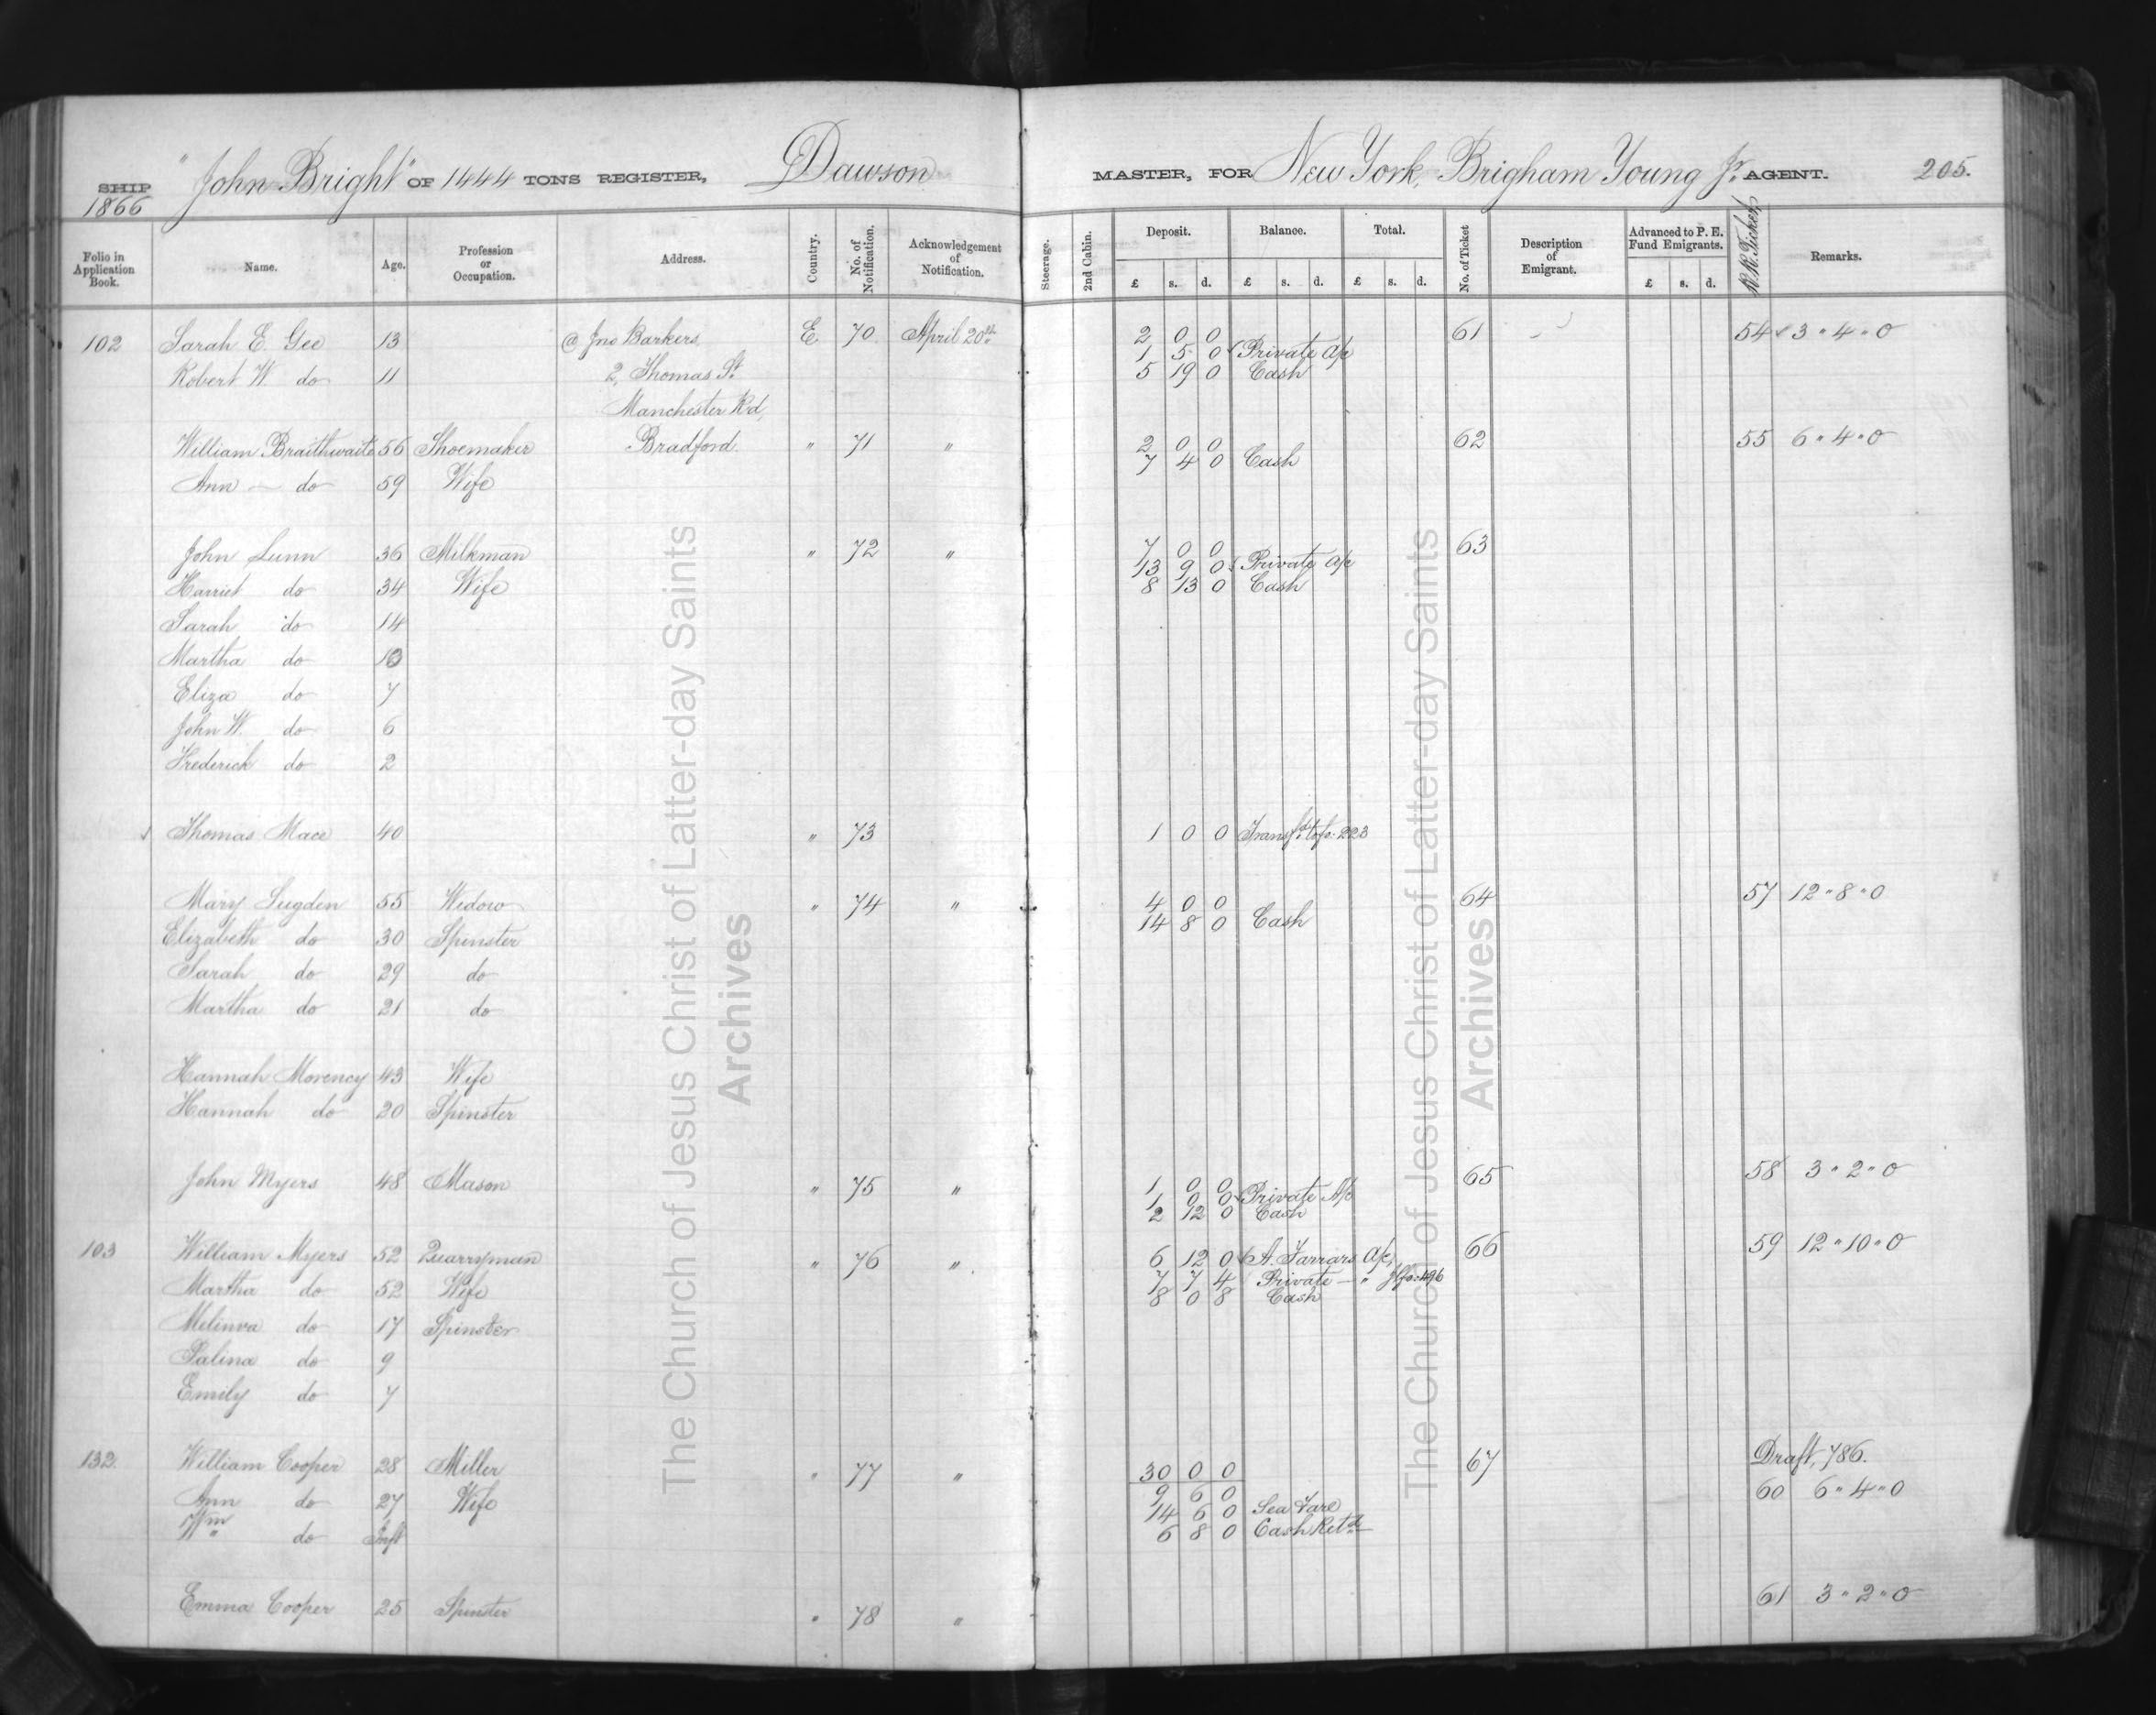 SHIP "John Bright" OF 1444 TONS REGISTER, Dawson MASTER, FOR New York, Brigham Young Jr. AGENT. 205.
1866
Folio in Application Book. Name. Age. Profession or Occupation. Address. Country. No. of Notification. Acknowledgement of Notification. Steerage. 2nd Cabin. Deposit. Balance. Total. No. of Ticket Description of Emigrant. Advanced to P. E. Fund Emigrants. R.R. Ticket Remarks.
£ s. d. £ s. d. £ s. d. £ s. d.
102 Sarah E. Gee 13 @ Jno Barkers, E 70 April 20th 2 0 0 61 54 3 " 4 " 0
1 5 0 Private a/c
Robert W. do 11 2, Thomas St. 5 19 0 Cash
Manchester Rd,
William Braithwaite 56 Shoemaker Bradford. " 71 " 2 0 0 62 55 6 " 4 " 0
7 4 0 Cash
Ann — do 59 Wife
John Lunn 36 Milkman " 72 " 7 0 0 63
13 9 0 Private a/c
Harriet do 34 Wife 8 13 0 Cash
Sarah do 14
Martha do 10
Eliza do 7
John W. do 6
Frederick do 2
Thomas Mace 40 " 73 1 0 0 Transfd. to fo. 223
Mary Sugden 55 Widow " 74 " 4 0 0 64 57 12 " 8 " 0
14 8 0 Cash
Elizabeth do 30 Spinster
Sarah do 29 do
Martha do 21 do
Hannah Morency 43 Wife
Hannah do 20 Spinster
John Myers 48 Mason " 75 " 1 0 0 65 58 3 " 2 " 0
1 0 0 Private A/c
2 12 0 Cash
103 William Myers 52 Quarryman " 76 " 6 12 0 A. Farrars a/c, 66 59 12 " 10 " 0
7 7 4 Private — "
Martha do 52 Wife 8 0 8 Cash
Melinva do 17 Spinster
Palina do 9
Emily do 7
132 William Cooper 28 Miller " 77 " 30 0 0 67 Draft, 786.
Ann do 27 Wife 9 6 0 60 6 " 4 " 0
14 6 0 Sea Fare
Wm do Inft 6 8 0 Cash Retd
Emma Cooper 25 Spinster " 78 " 61 3 " 2 " 0
The Church of Jesus Christ of Latter-day Saints
Archives
The Church of Jesus Christ of Latter-day Saints
Archives